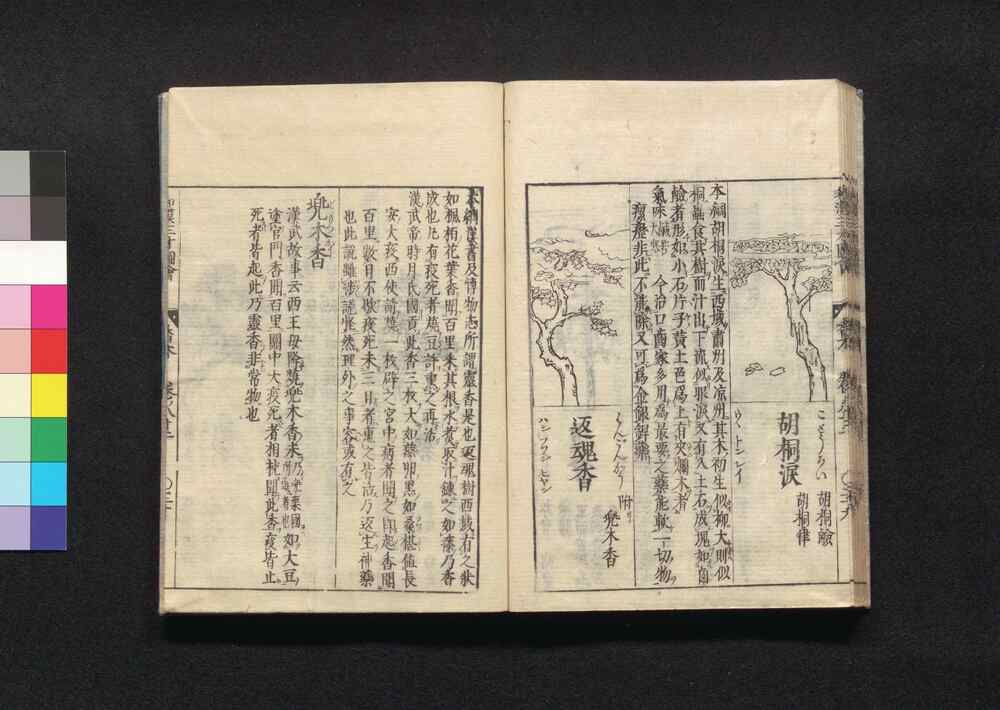 胡桐淚
ことうるい
胡桐鹼
胡桐律
本綱胡桐淚生西域肅州及凉州其木初生似柳大則似
桐蟲食其樹而汁出下流似眼淚又有入土石成塊如鹵
鹼者形如小石片子黃土色爲上有夾爛木者
氣味鹹苦大寒 今治口齒家多用爲最要之藥能軟一切物
瘰癧非此不能除又可爲金銀銲藥
返魂香
はんごんかう
ハン フヲン ヒヤン
附
兠木香
本綱漢書及博物志所謂靈香是也返魂樹西域有之狀
如楓栢花葉香聞百里采其根水煑取汁鍊之如漆乃香
成也凡有疫死者燒豆許熏之再活
漢武帝時月氏國貢此香三枚大如燕卵黑如桑椹值長
安大疫西使請燒一枚辟之宮中病者聞之即起香聞
百里數日不歇疫死未三日者熏之皆活乃返生神藥
也此說雖涉詭怪然理外之事容或有之
兠木香
漢武故事云西王母降燒兠木香末乃兠渠國所進 如大豆
塗宮門香聞百里關中大疫死者相枕聞此香疫皆止
死者皆起此乃靈香非常物也
香木
卷八十二